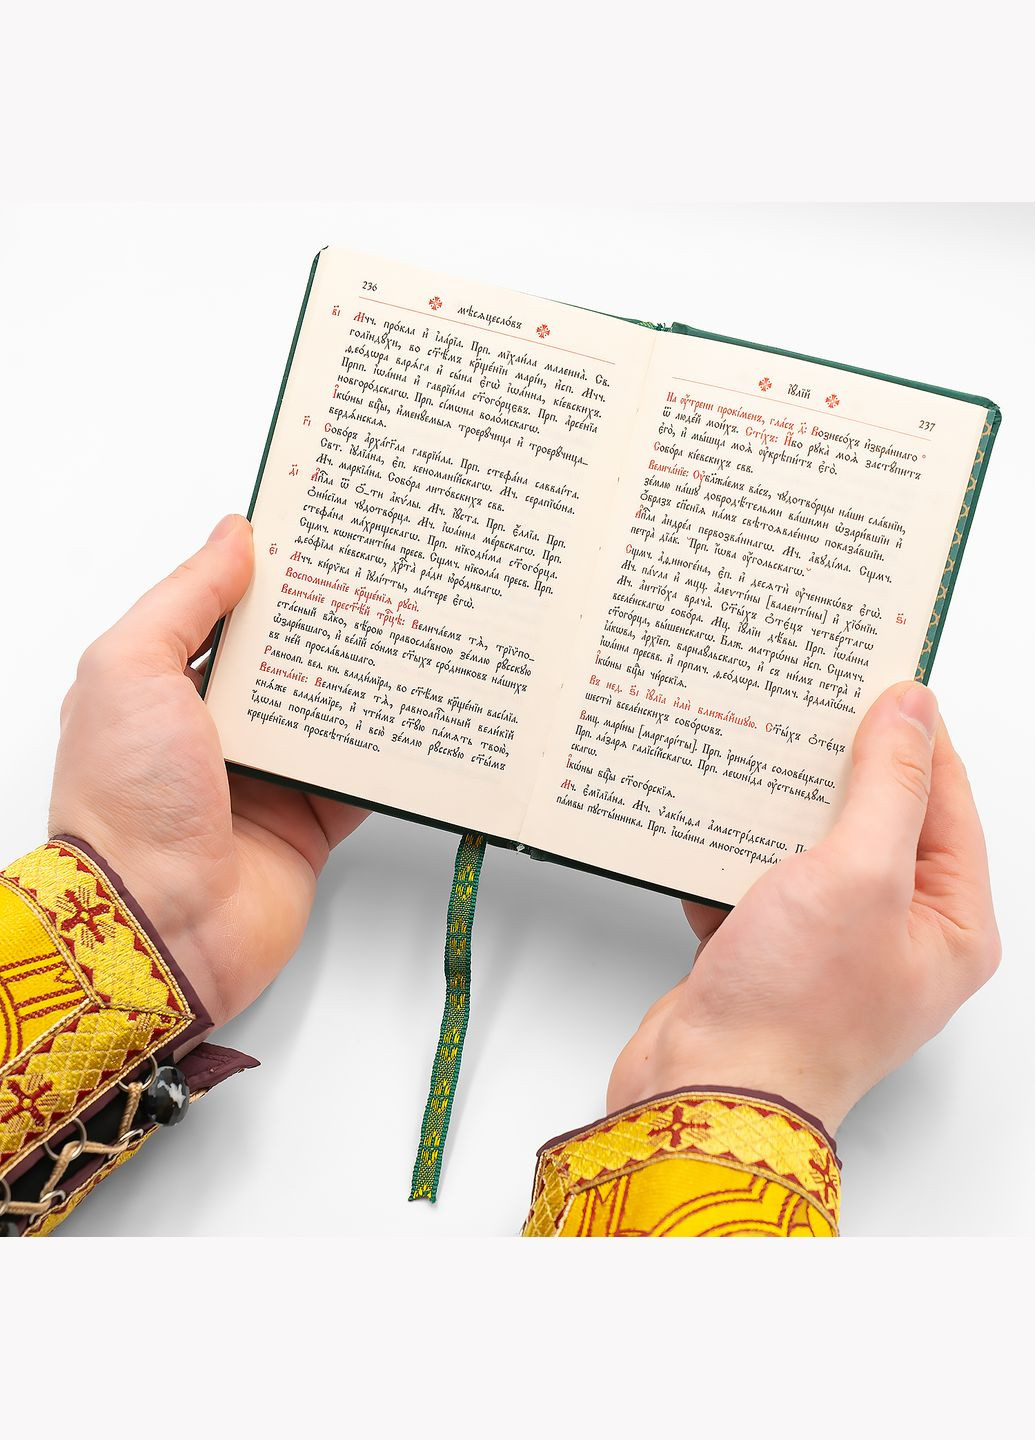 236
мѣсѧцесло́въ
в҃і Мчч. про́кла и҆ і҆ла́рїа. Прп. мїхаи́ла малеина̀. Св.
голїндꙋ́хи, во ст҃ѣ́мъ крⷭ҇ще́нїи марі́и, и҆сп. Мчч.
ѳео́дѡра варѧ́га и҆ сы́на є҆гѡ̀ і҆ѡа́нна, кі́евскихъ.
Прпп. і҆ѡа́нна и҆ гаврїи́ла ст҃ого́рцєвъ. Прп. а҆рсе́нїа
новгоро́дскагѡ. Прп. сі́мѡна воло́мскагѡ.
І҆кѡ́ны бцⷣы, и҆менꙋ́емыѧ троерꙋ́чица и҆ троерꙋ́чица_
бердѧ́нскаѧ.
г҃і Собо́ръ а҆рха́гг҃ла гаврїи́ла. Прп. стефа́на савваи́та.
Свт. і҆ꙋлїа́на, є҆п. кеномані́йскагѡ. Мч. серапїѡ́на.
Мч. маркїа́на. Собо́ра лито́вскихъ свв.
д҃і А҆пⷭ҇ла ѿ о҃-ти а҆кѵ́лы. Мч. і҆ꙋ́ста. Прп. є҆́ллїа. Прп.
ѻ҆ни́сїма чꙋдотво́рца. Мч. і҆ѡа́нна ме́рвскагѡ. Прп.
стефа́на ма́хрищскагѡ. Прп. нїкоди́ма ст҃ого́рца.
Сщмч. кѡнстанті́на пресв. Сщмч. нїко́лаа пресв. Прп.
ѳео́фїла кі́евскагѡ, хрⷭ҇та̀ ра́ди ю҆ро́дивагѡ.
є҃і Мчч. ки́рѵка и҆ і҆ꙋлі́тты, ма́тере є҆гѡ̀.
Воспомина́нїе крⷭ҇ще́нїѧ рꙋсѝ.
Велича́нїе прест҃ѣ́й трⷪ҇цѣ: Велича́емъ тѧ̀, трїѵпо_
ста́сный влⷣко, вѣ́рою правосла́вною зе́млю рꙋ́сскꙋю
ѡ҆зари́вшаго, и҆ ве́лїй со́нмъ ст҃ы́хъ сро́дникѡвъ на́шихъ
въ не́й просла́вльшаго.
Равноап. вел. кн. влади́мїра, во ст҃ѣ́мъ крⷭ҇ще́нїи васі́лїа.
Велича́нїе: Велича́емъ тѧ̀, равноапⷭ҇льный вели́кїй
кнѧ́же влади́мїре, и҆ чти́мъ ст҃ꙋ́ю па́мѧть твою̀,
і҆́дѡлы попра́вшаго, и҆ всю̀ зе́млю рꙋ́сскꙋю ст҃ы́мъ
креще́нїемъ просвѣти́вшаго.
і҆ꙋ́лїй
237
На ᲂу҆́трени прокі́менъ, гла́съ д҃: Вознесо́хъ и҆збра́ннаго
ѿ люде́й мои́хъ. Сті́хъ: И҆́бо рꙋка̀ моѧ̀ застꙋ́питъ
є҆го̀, и҆ мы́шца моѧ̀ ᲂу҆крѣпи́тъ є҆го̀.
Собо́ра кі́евскихъ свв.
Велича́нїе: Оу҆блажа́емъ ва́съ, чꙋдотво́рцы на́ши сла́внїи,
зе́млю на́шꙋ добродѣ́тельми ва́шими ѡ҆зари́вшїи и҆
ѻ҆́бразъ спⷭ҇се́нїѧ на́мъ свѣтоѧвле́ннѡ показа́вшїи.
А҆пⷭ҇ла а҆ндре́а первозва́ннагѡ. Мч. а҆вꙋді́ма. Сщмч.
петра̀ дїа́к. Прп. і҆́ѡва ᲂу҆го́льскагѡ.
ѕ҃і Сщмч. а҆ѳиноге́на, є҆п. и҆ десѧтѝ ᲂу҆ченикѡ́въ є҆гѡ̀.
Мч. па́ѵла и҆ мцц. а҆леѵті́ны [валенті́ны] и҆ хїо́нїи.
Мч. а҆нтїо́ха врача̀. Ст҃ы́хъ ѻ҆тє́цъ четве́ртагѡ
вселе́нскагѡ собо́ра. Мц. і҆ꙋлі́и дѣ́вы. Прп. і҆ѡа́нна
ст҃ого́рца, вы́шенскагѡ. Блж. матрѡ́ны и҆сп. Сщмчч.
і҆а́кѡва, а҆рхїеп. барнаꙋ́льскагѡ, и҆ съ ни́мъ петра̀ и҆
і҆ѡа́нна пресвв. и҆ прпмч. ѳео́дѡра. Прпмч. а҆рдалїѡ́на.
І҆кѡ́ны бцⷣы чи́рскїѧ.
Въ нед. ѕ҃і і҆ꙋ́лїа и҆лѝ ближа́йшꙋю. Ст҃ы́хъ ѻ҆тє́цъ
шестѝ вселе́нскихъ собо́рѡвъ.
Вмц. марі́ны [маргарі́ты]. Прп. і҆рина́рха солове́цкагѡ.
Прп. ла́зарѧ галїсі́йскагѡ. Прп. леѡні́да ᲂу҆стьнедꙋм_
скагѡ.
І҆кѡ́ны бцⷣы ст҃ого́рскїѧ.
Мч. є҆мїлїа́на. Мч. ѵ҆акі́нѳа а҆мастрі́дскагѡ.
па́мвы пꙋсты́нника. Прп. і҆ѡа́нна